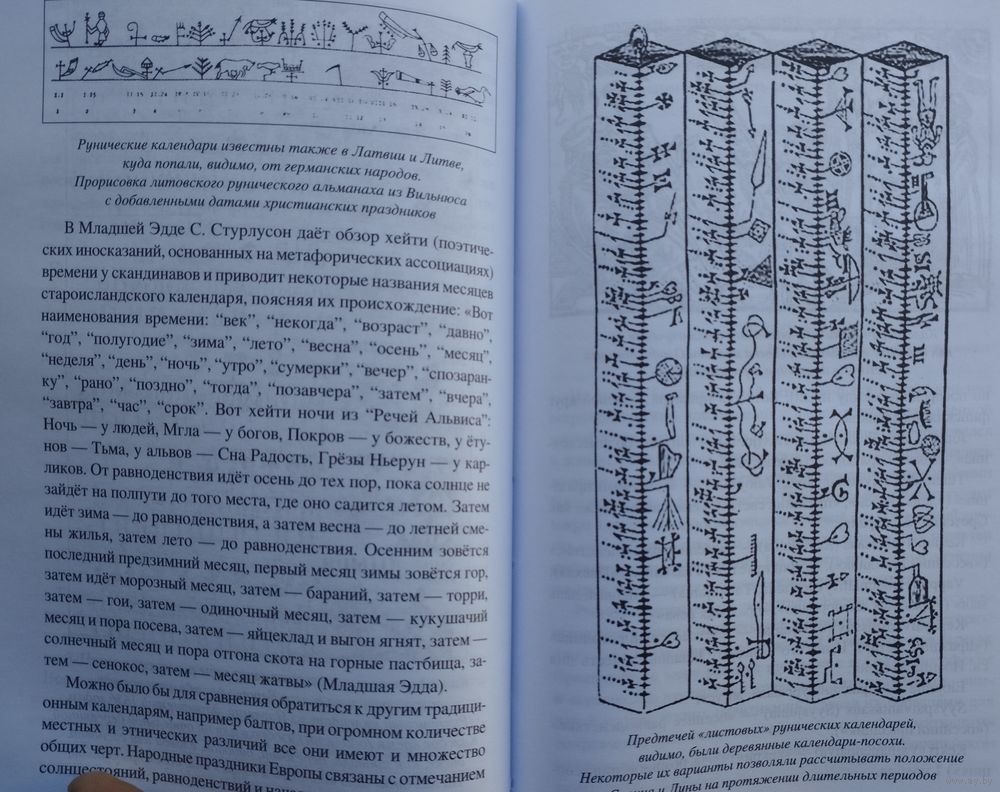 Рунические календари известны также в Латвии и Литве,
куда попали, видимо, от германских народов.
Прорисовка литовского рунического альманаха из Вильнюса
с добавленными датами христианских праздников
В Младшей Эдде С. Стурлусон даёт обзор хейти (поэтиче-
ских иносказаний, основанных на метафорических ассоциациях)
времени у скандинавов и приводит некоторые названия месяцев
староисландского календаря, поясняя их происхождение: «Вот
наименования времени: “век”, “некогда”, “возраст”, “давно”,
“год”, “полугодие”, “зима”, “лето”, “весна”, “осень”, “месяц”,
“неделя”, “день”, “ночь”, “утро”, “сумерки”, “вечер”, “спозаран-
ку”, “рано”, “поздно”, “тогда”, “позавчера”, “затем”, “вчера”,
“завтра”, “час”, “срок”. Вот хейти ночи из “Речей Альвиса”:
Ночь — у людей, Мгла — у богов, Покров — у божеств, у ёту-
нов — Тьма, у альвов — Сна Радость, Грёзы Ньерун — у кар-
ликов. От равноденствия идёт осень до тех пор, пока солнце не
зайдёт на полпути до того места, где оно садится летом. Затем
идёт зима — до равноденствия, а затем весна — до летней сме-
ны жилья, затем лето — до равноденствия. Осенним зовётся
последний предзимний месяц, первый месяц зимы зовётся гор,
затем идёт морозный месяц, затем — бараний, затем — торри,
затем — гои, затем — одиночный месяц, затем — кукушачий
месяц и пора посева, затем — яйцеклад и выгон ягнят, затем —
солнечный месяц и пора отгона скота на горные пастбища, за-
тем — сенокос, затем — месяц жатвы» (Младшая Эдда).
Можно было бы для сравнения обратиться к другим традици-
онным календарям, например балтов, при огромном количестве
местных и этнических различий все они имеют и множество
общих черт. Народные праздники Европы связаны с отмечанием
солнцестояний, равноденствий и
Предтечей «листовых» рунических календарей,
видимо, были деревянные календари-посохи.
Некоторые их варианты позволяли рассчитывать положение
Солнца и Луны на протяжении длительных периодов